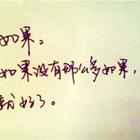 如果。
如果没有那么多如果，
就好了。